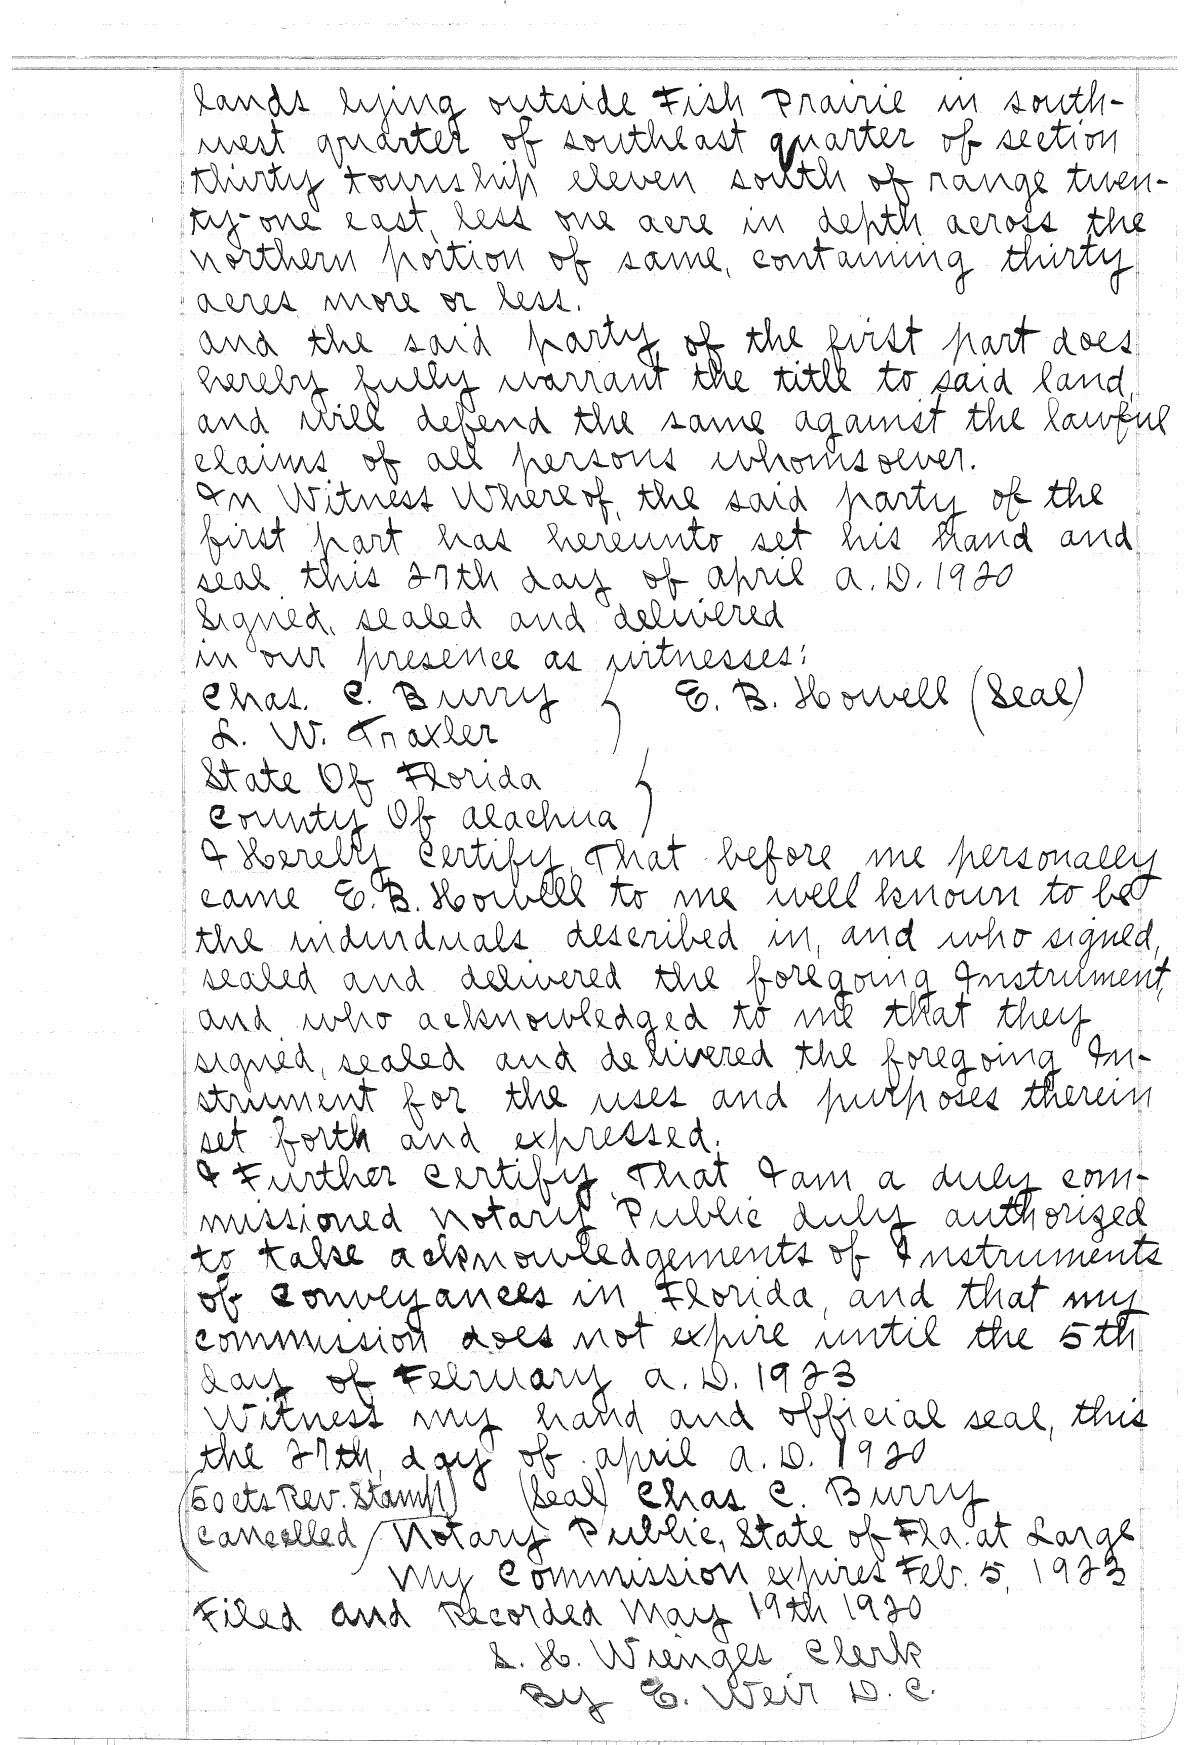 lands lying outside Fish Prairie in south-
west quarter of southeast quarter of section
thirty township eleven south of range twen-
ty-one east, less one acre in depth across the
northern portion of same, containing thirty
acres more or less.
and the said party of the first part does
hereby fully warrant the title to said land,
and will defend the same against the lawful
claims of all persons whomsoever.
In Witness Whereof, the said party of the
first part has hereunto set his hand and
seal this 27th day of april a.D. 1920
Signed, sealed and delivered
in our presence as witnesses:
Chas. C. Burry } E. B. Howell (Seal)
L. W. Traxler
State Of Florida }
County Of alachua
I Hereby Certify, That before me personally
came E.B. Howell to me well known to be
the individuals described in, and who signed,
sealed and delivered the foregoing Instrument,
and who acknowledged to me that they
signed, sealed and delivered the foregoing In-
strument for the uses and purposes therein
set forth and expressed.
I Further Certify, That I am a duly com-
missioned Notary Public duly authorized
to take acknowledgements of Instruments
of Conveyances in Florida, and that my
commission does not expire until the 5th
day of February a.D. 1923
Witness my hand and official seal, this
the 27th, day of april a.D. 1920
(50cts Rev. Stamp) (Seal) Chas C. Burry
(Cancelled) Notary Public, State of Fla. at Large
My Commission expires Feb. 5, 1923
Filed and Recorded May 19th 1920
S. H. Wienges Clerk
By E. Weir D.C.